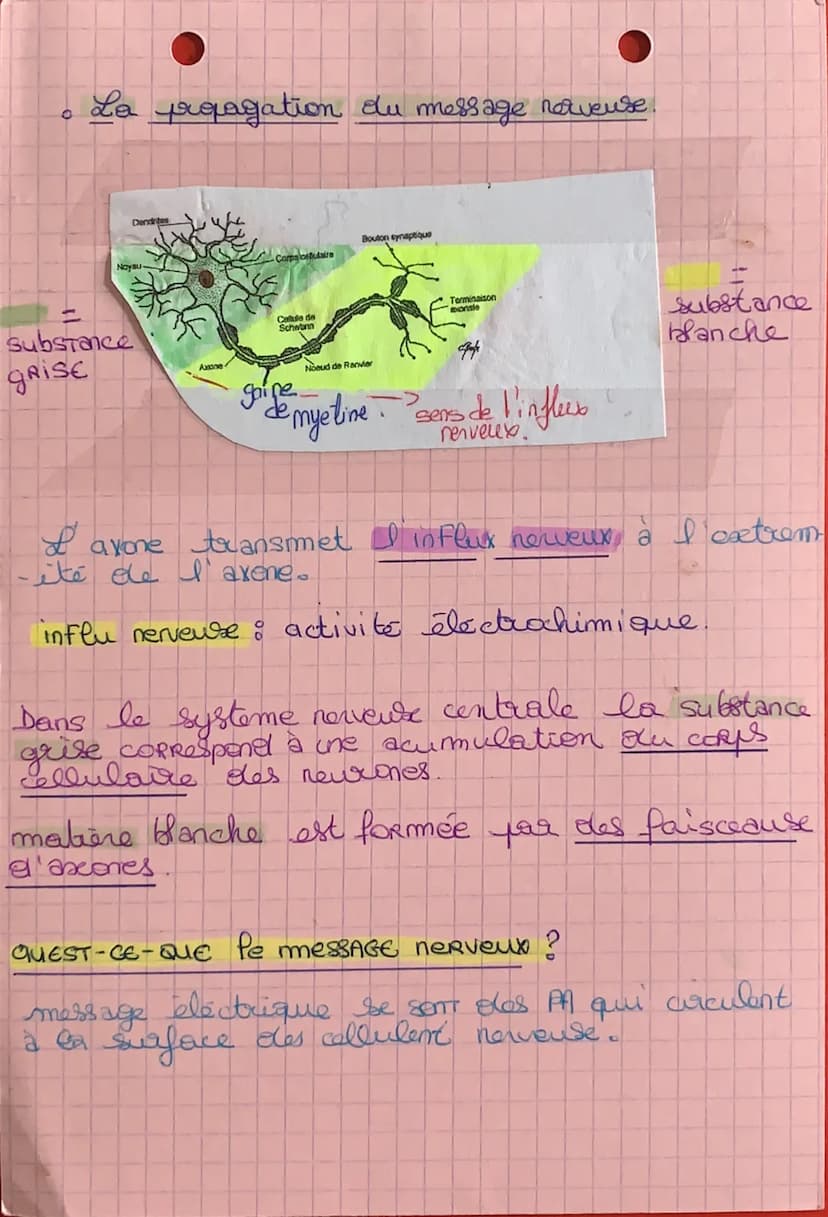 ° La propagation du message nerveuse.
Dendrites
Bouton synaptique
Noyau
Corps cellulaire
= substance blanche
Terminaison axonale
Cellule de Schwann
= substance GRISE
Axone
Noeud de Ranvier
gaine de myeline.
→ sens de l'influx nerveux.
L'axone transmet l'influx nerveux, à l'extrem-
-ité de l'axone.
influ nerveuse : activité électrochimique.
Dans le systeme nerveuse centrale la substance
grise correspond à une acumulation du corps
cellulaire des neurones.
matière blanche est formée par des faisceause
d'axones.
QUEST-CE-QUE le MESSAGE NERVEUX ?
message électrique se sont des PA qui circulent
à la surface des cellulent nerveuse.